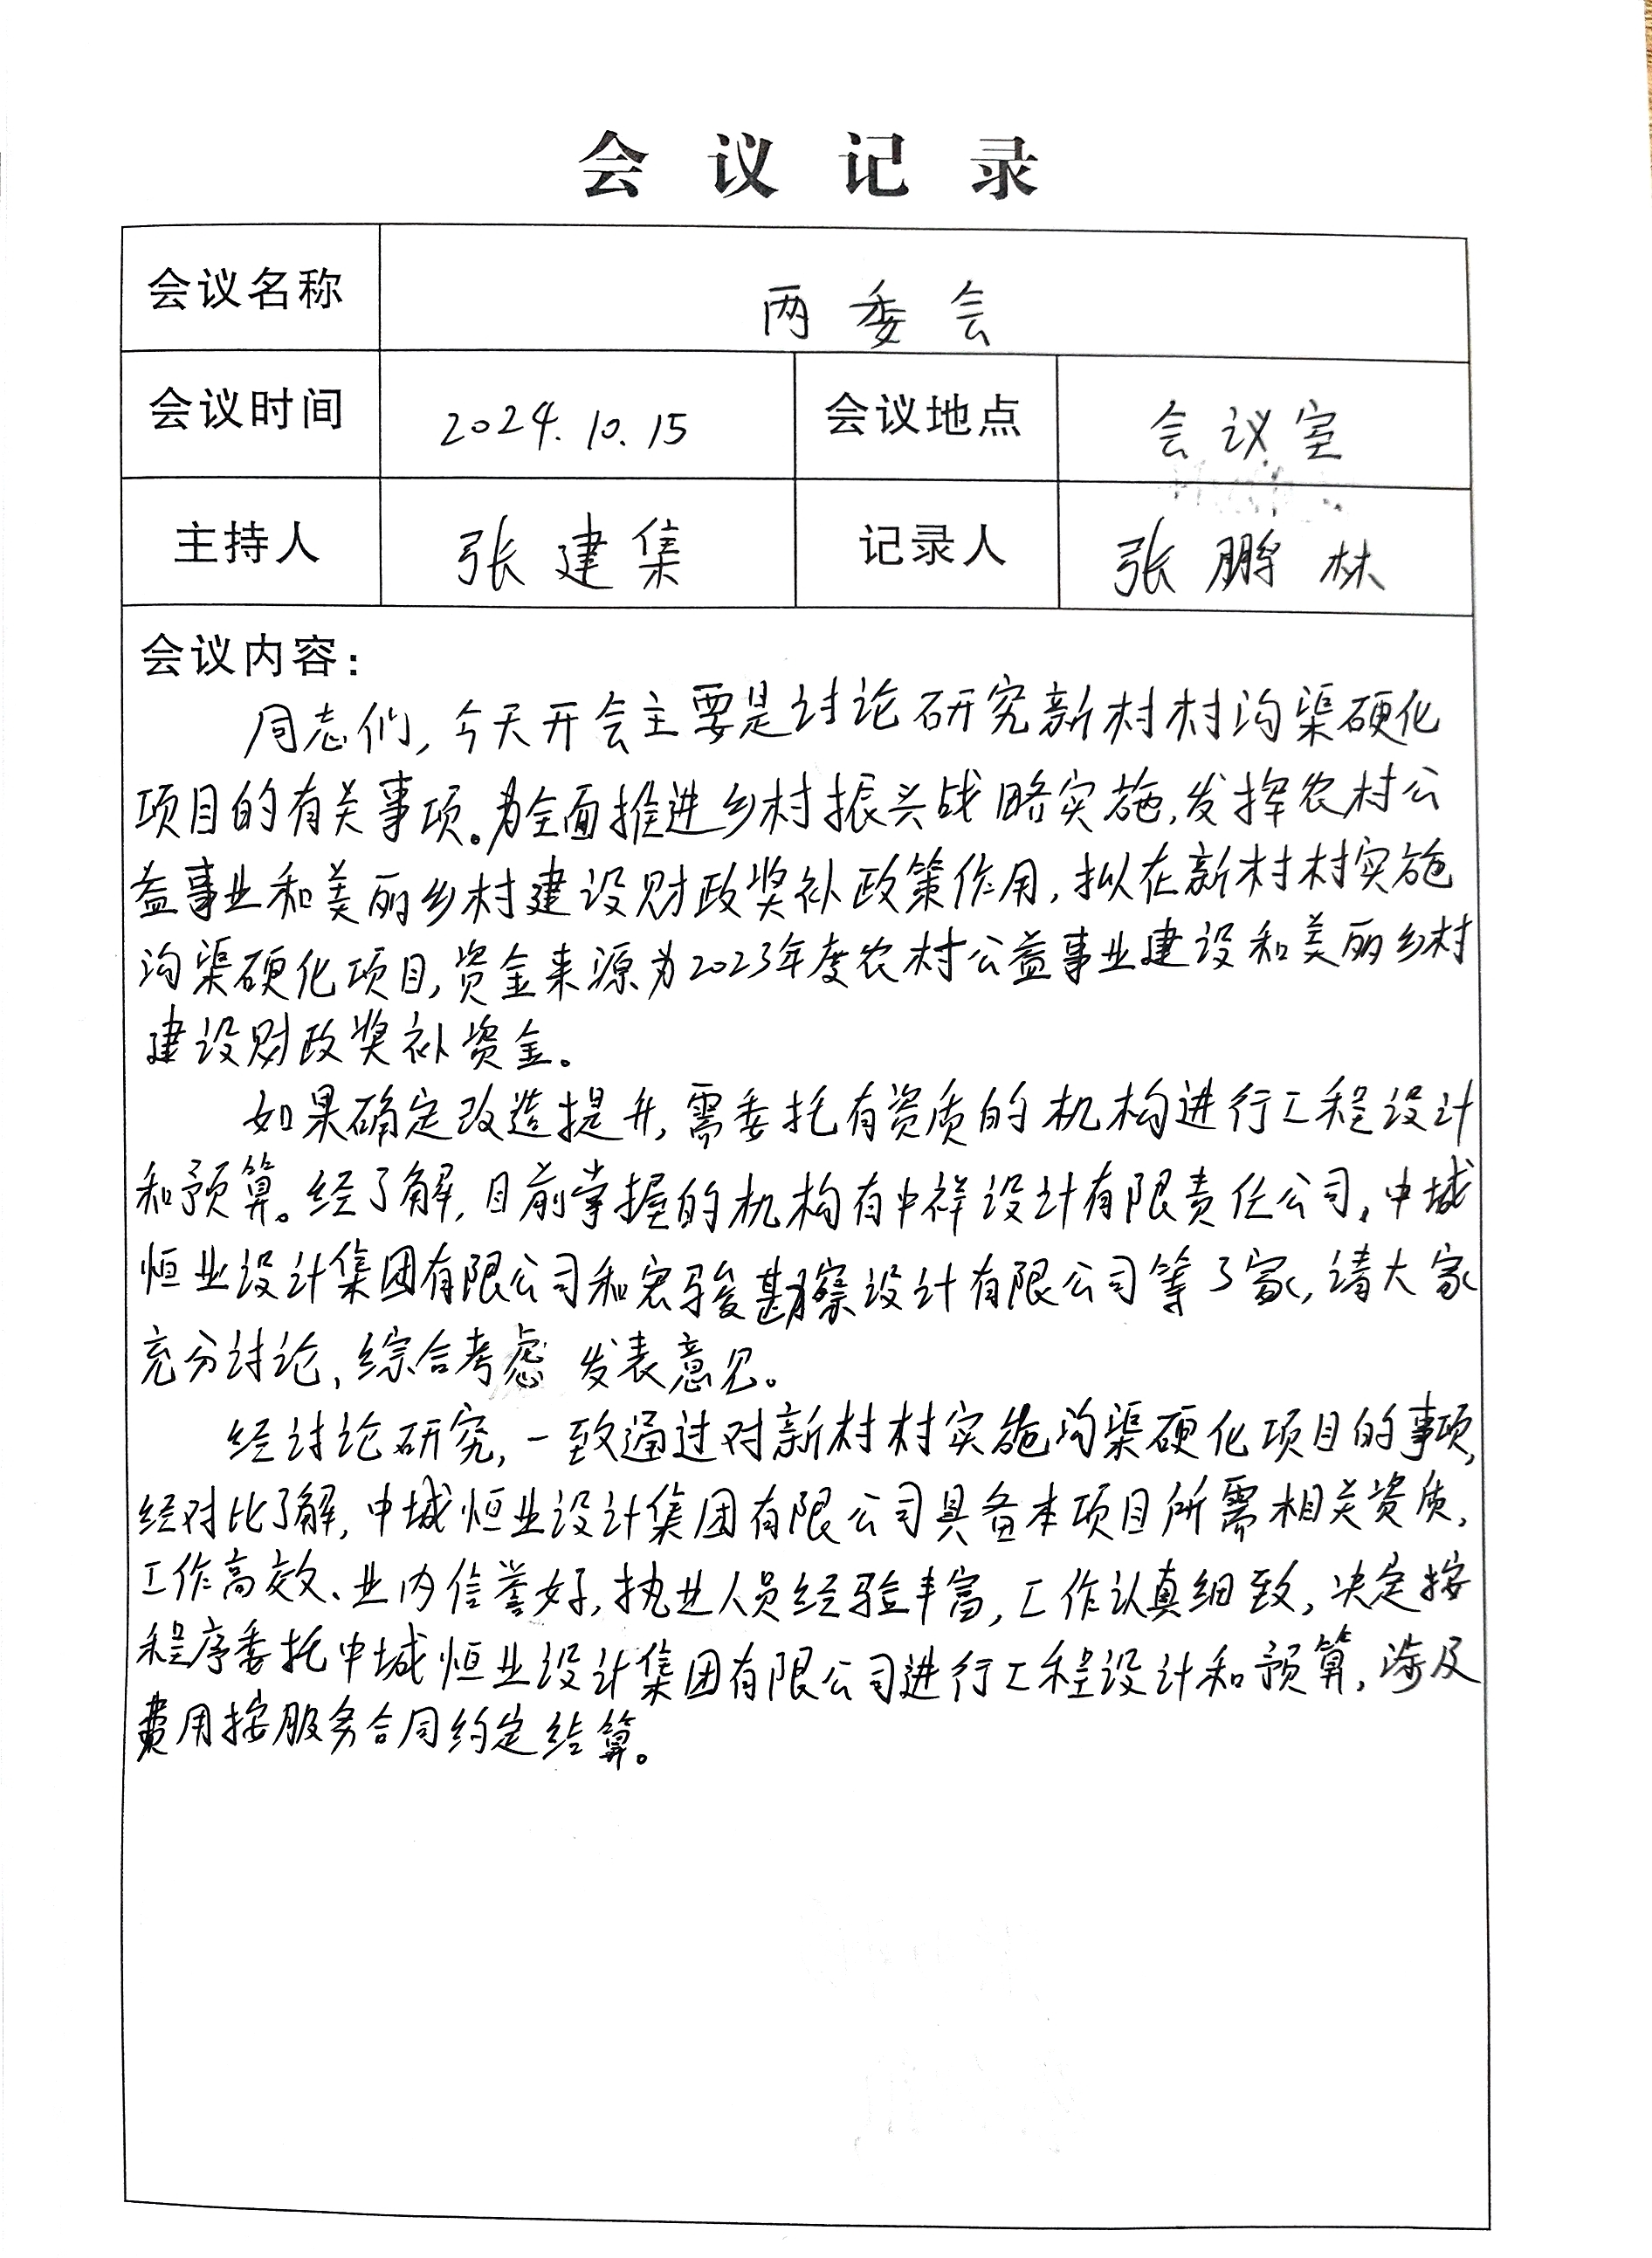 会议记录
会议名称 两委会
会议时间 2024.10.15 会议地点 会议室
主持人 张建集 记录人 张鹏林
会议内容：
同志们，今天开会主要是讨论研究新村村沟渠硬化
项目的有关事项。为全面推进乡村振兴战略实施，发挥农村公
益事业和美丽乡村建设财政奖补政策作用，拟在新村村实施
沟渠硬化项目，资金来源为2023年度农村公益事业建设和美丽乡村
建设财政奖补资金。
如果确定改造提升，需委托有资质的机构进行工程设计
和预算。经了解，目前掌握的机构有中祥设计有限责任公司，中城
恒业设计集团有限公司和宏骏勘察设计有限公司等3家，请大家
充分讨论，综合考虑 发表意见。
经讨论研究，一致通过对新村村实施沟渠硬化项目的事项，
经对比了解，中城恒业设计集团有限公司具备本项目所需相关资质，
工作高效、业内信誉好，执业人员经验丰富，工作认真细致，决定按
程序委托中城恒业设计集团有限公司进行工程设计和预算，涉及
费用按服务合同约定结算。